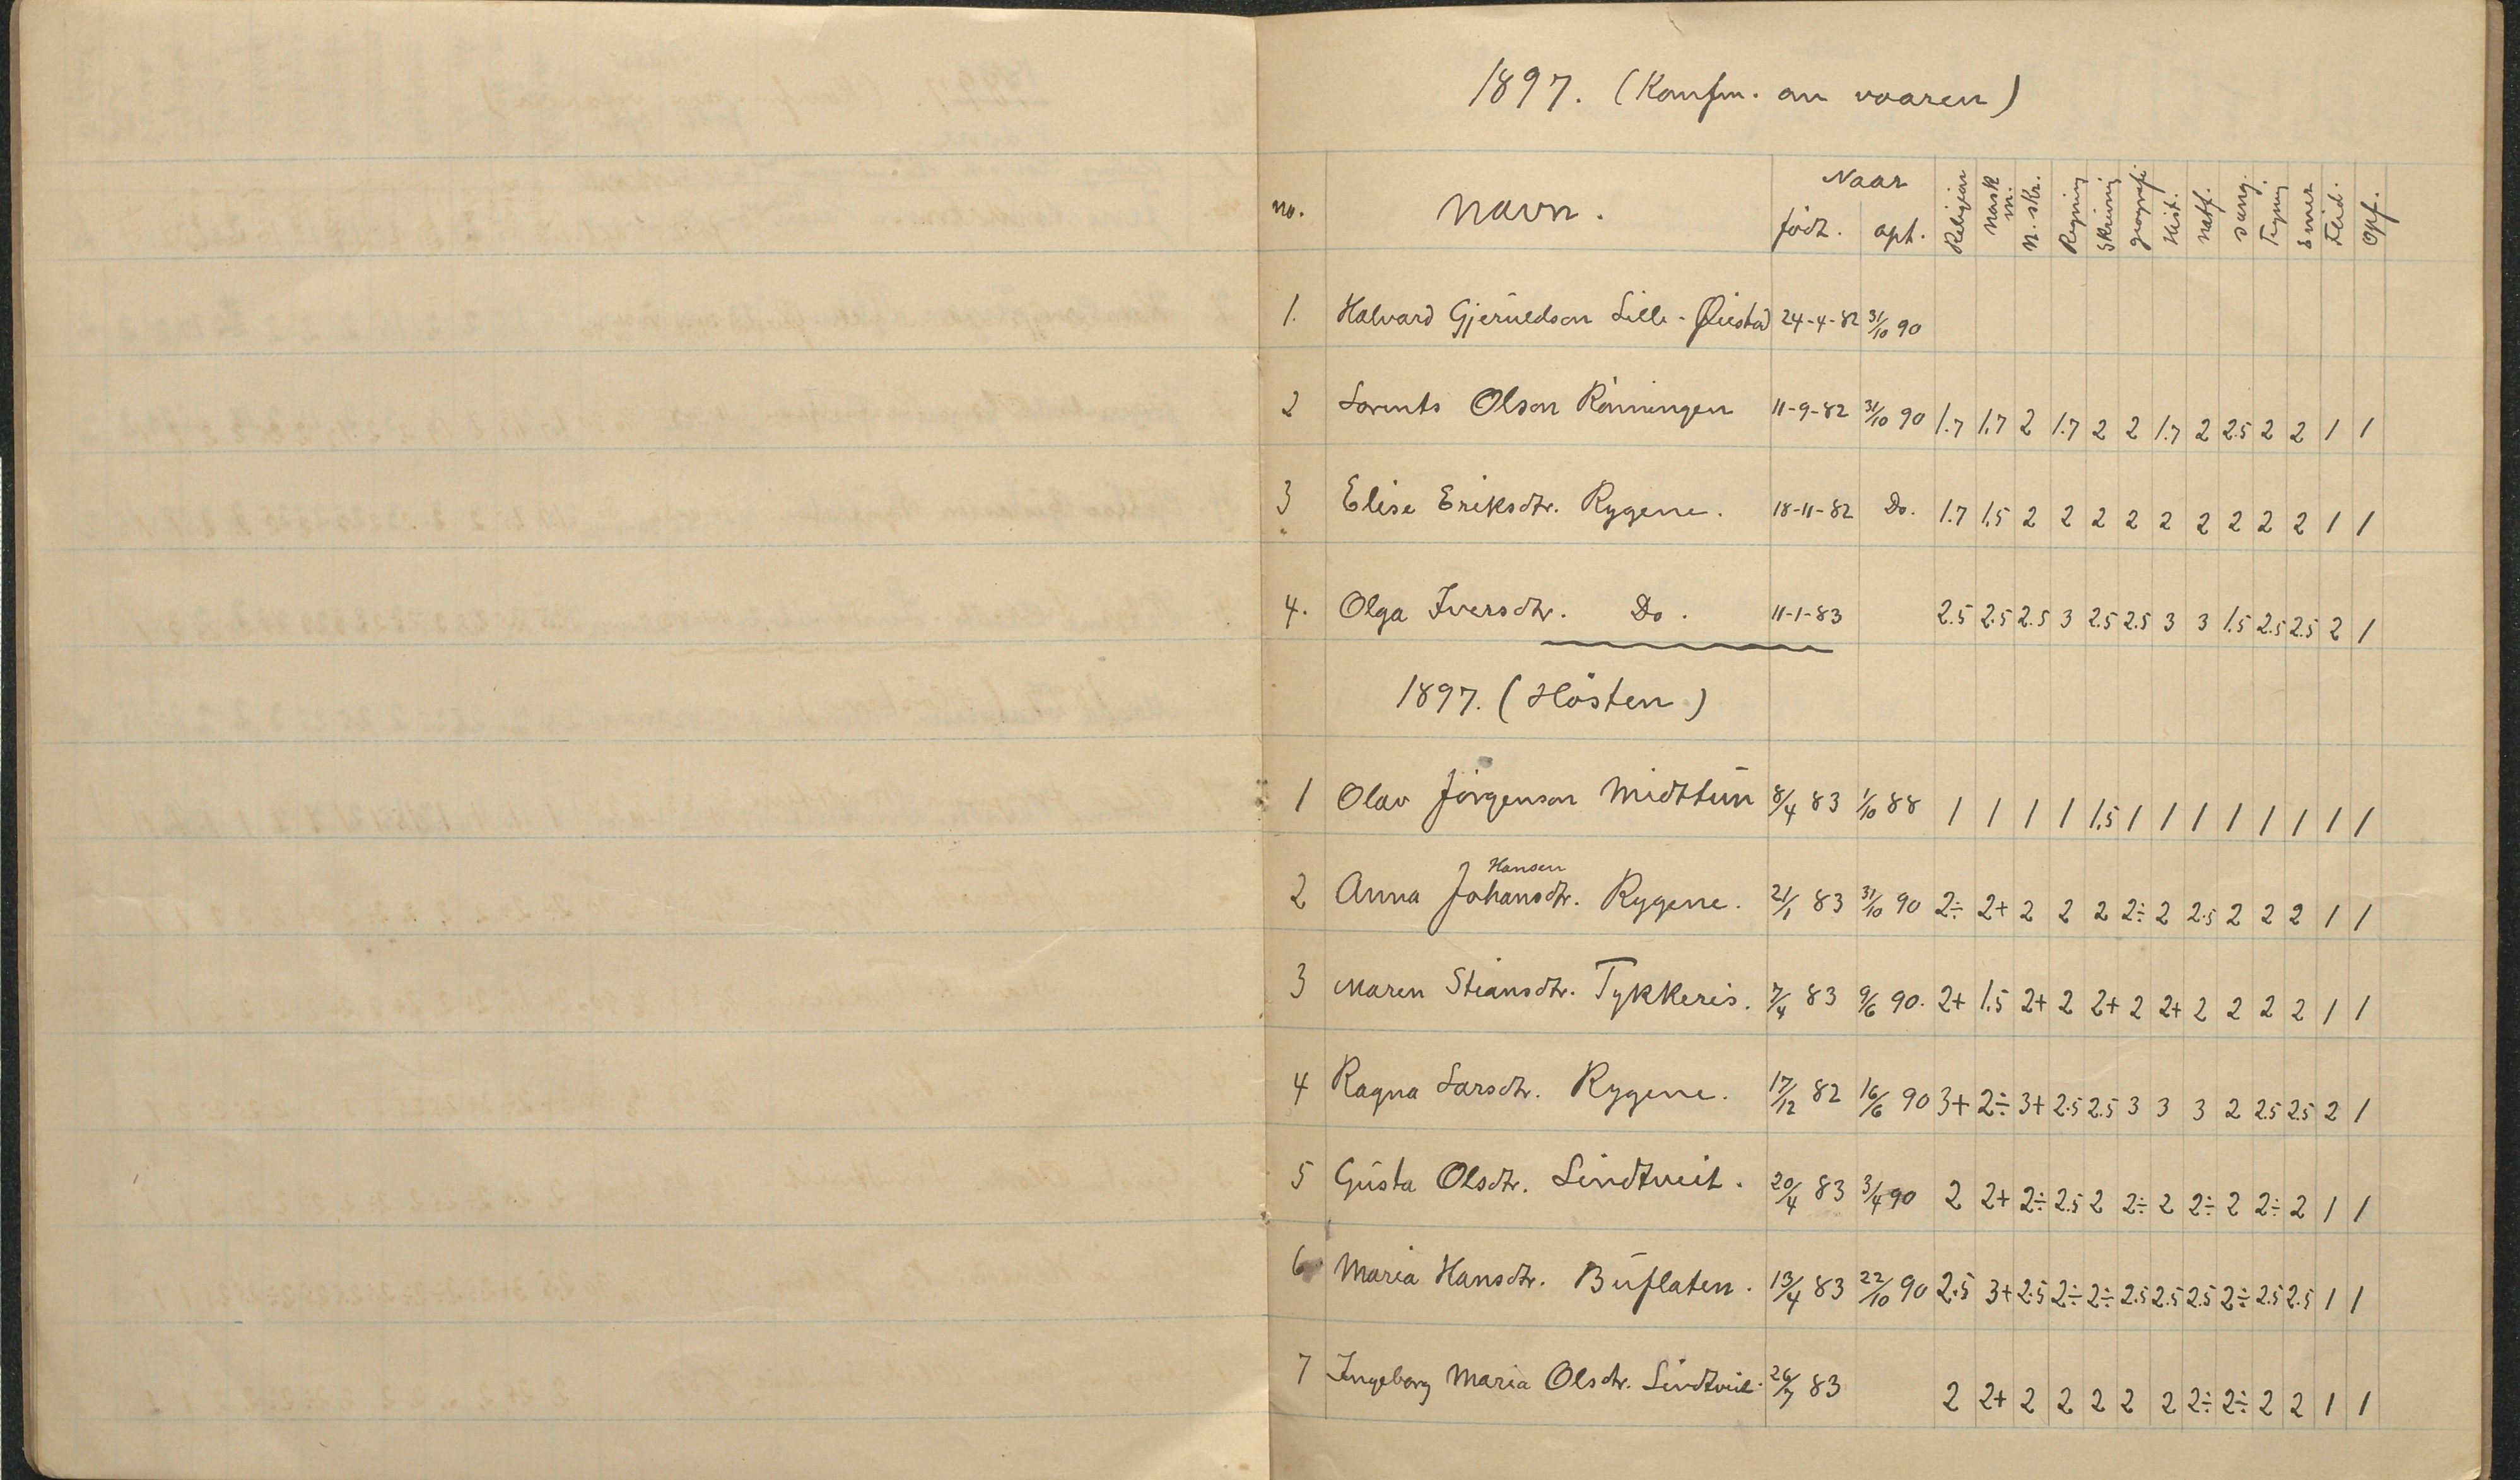 1897. (Konfm. om vaaren)
Naar
no. Navn. födt. opt. Religion Norsk m. N. skr. Regning Skrivning geografi Hist. Natf. Sang. Tegning Evner Flid. Opf.
1. Halvard Gjeruldson Lille-Øiestad 24-4-82 31/10 90
2 Lorents Olson Rönningen 11-9-82 31/10 90 1.7 1.7 2 1.7 2 2 1.7 2 2.5 2 2 1 1
3 Elise Eriksdtr. Rygene. 18-11-82 Do. 1.7 1.5 2 2 2 2 2 2 2 2 2 1 1
4. Olga Iversdtr. Do. 11-1-83 2.5 2.5 2.5 3 2.5 2.5 3 3 1.5 2.5 2.5 2 1
1897. (Hösten)
1 Olav Jörgenson Midttun 8/4 83 1/10 88 1 1 1 1 1.5 1 1 1 1 1 1 1 1
Hansen
2 Anna Johansdtr. Rygene. 21/1 83 31/10 90 2÷ 2+ 2 2 2 2÷ 2 2.5 2 2 2 1 1
3 Maren Stiansdtr. Tykkeris. 7/4 83 9/6 90. 2+ 1.5 2+ 2 2+ 2 2+ 2 2 2 2 1 1
4 Ragna Larsdtr. Rygene. 17/12 82 16/6 90 3+ 2÷ 3+ 2.5 2.5 3 3 3 2 2.5 2.5 2 1
5 Gusta Olsdtr. Lindtveit. 20/4 83 3/4 90 2 2+ 2÷ 2.5 2 2÷ 2 2÷ 2 2÷ 2 1 1
6 Maria Hansdtr. Buflaten. 13/4 83 22/10 90 2.5 3+ 2.5 2÷ 2÷ 2.5 2.5 2.5 2÷ 2.5 2.5 1 1
7 Ingeborg Maria Olsdtr. Lindtveit. 26/7 83 2 2+ 2 2 2 2 2 2÷ 2÷ 2 2 1 1